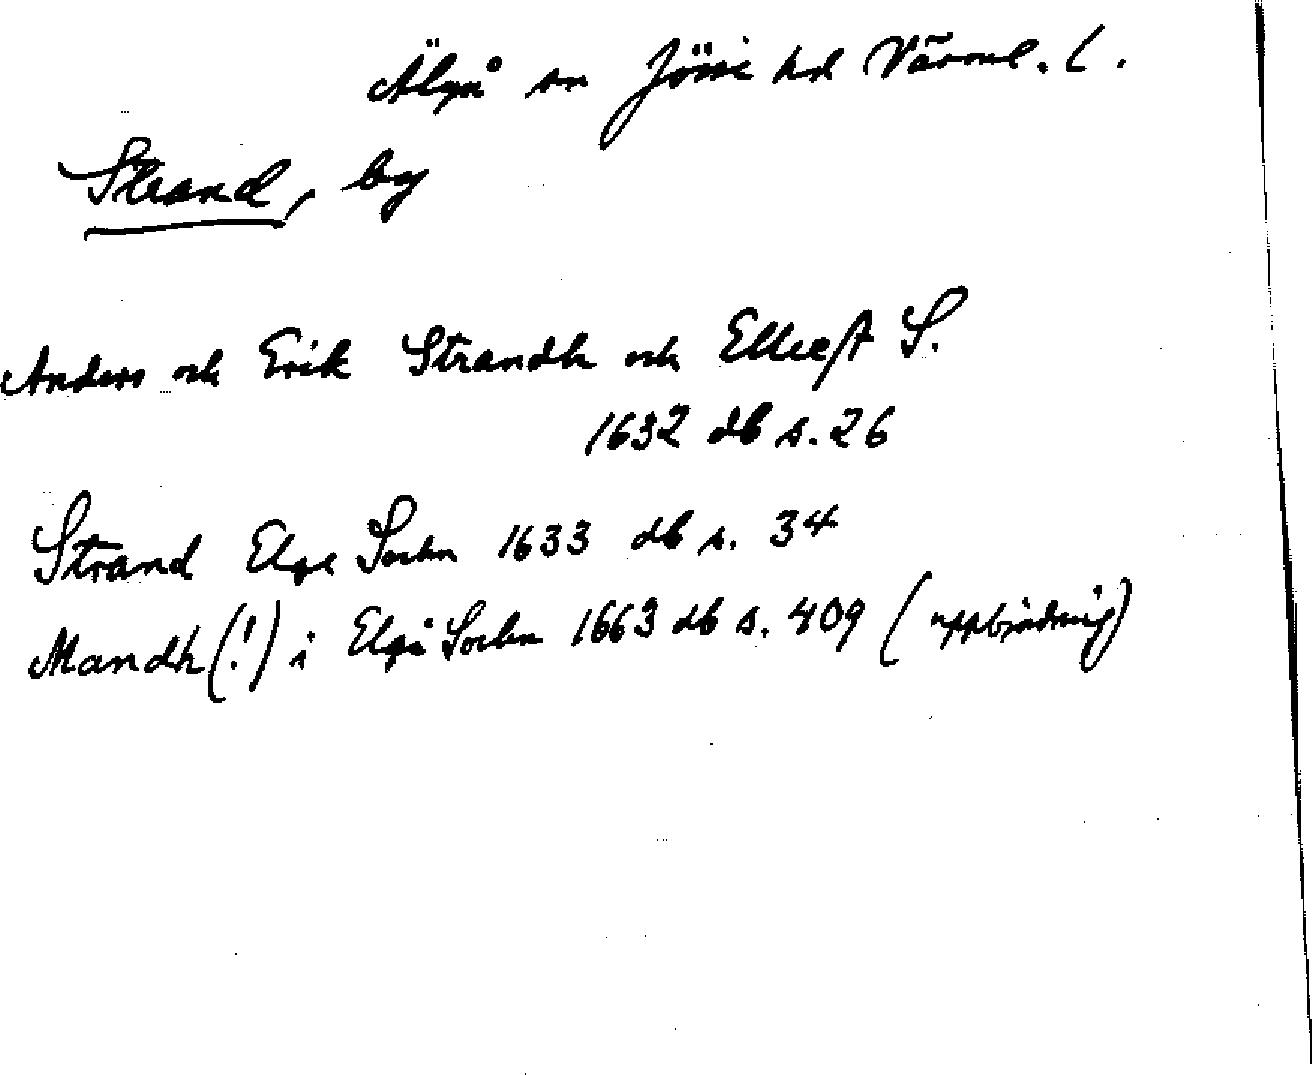 Älgå sn Jösse hd Värml. l.
Strand, by
Anders och Erik Strandh och Ellieft S.
1632 db s. 26
Strand Elge Sochn 1633 db s. 34
Mandh (!) i Elgå Sochn 1663 db s. 409 (uppbjudning)